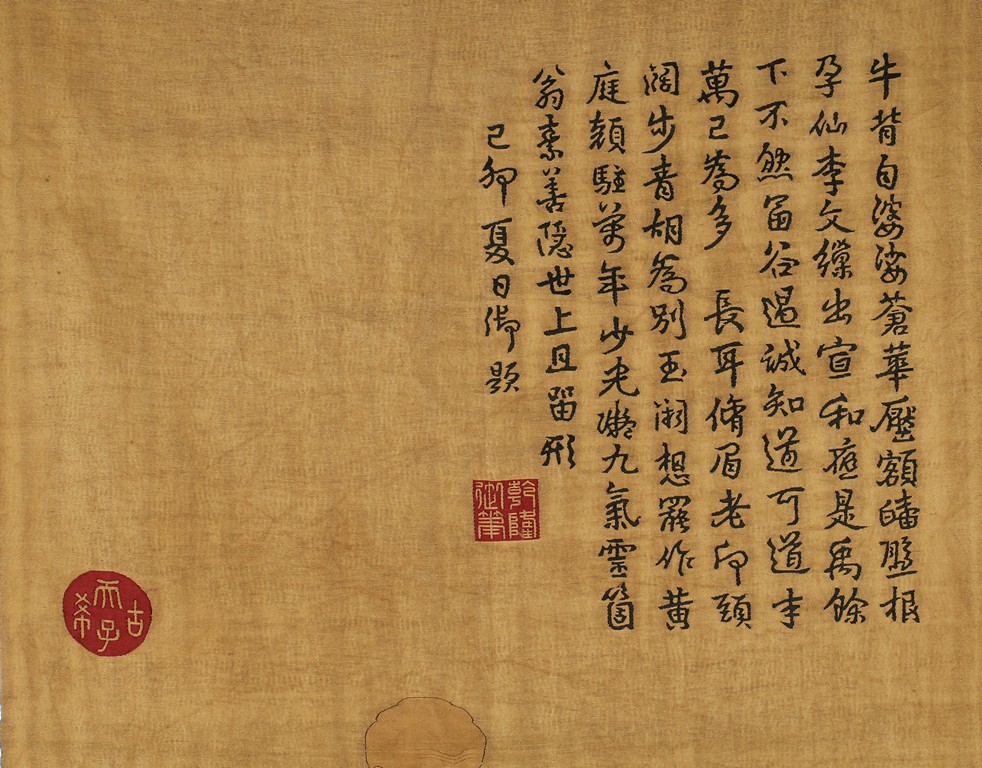 牛背自婆娑蒼華壓額皤盤根
孕仙李文繅出宣和應是禹餘
下不然函谷過誠知道可道半
萬已為多　長耳脩眉老卬頭
闊步青胡為別玉闕想罷作黃
庭顏駐萬年少光凝九氣靈箇
翁素善隱世上且留形
己卯夏日御題
乾隆
御筆
古希天子